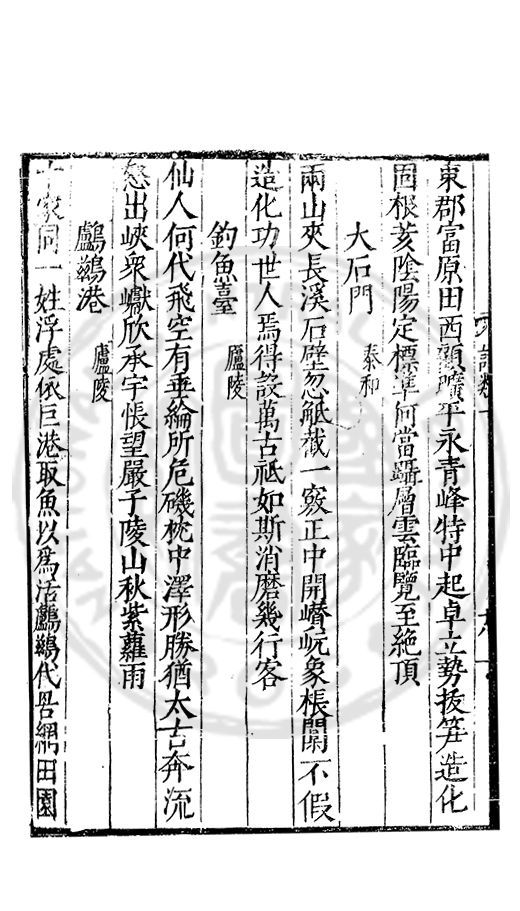 東郡富原田西顧曠平永青峰特中起卓立勢拔笋造化
固根亥陰陽定標準何當躡層雲臨覽至絶頂
大石門　泰和
兩山夾長溪石壁忽觝截一竅正中開巑岏象棖闑不假
造化功世人焉得設萬古祗如斯消磨幾行客
釣魚臺　廬陵
仙人何代飛空有垂綸所危磯枕中澤形勝猶太古奔流
怒出峽衆巘欣承宇悵望嚴子陵山秋紫蘿雨
鸕鷀港　廬陵
十家同一姓浮處依巨港取魚以爲活鸕鷀代罟網田園